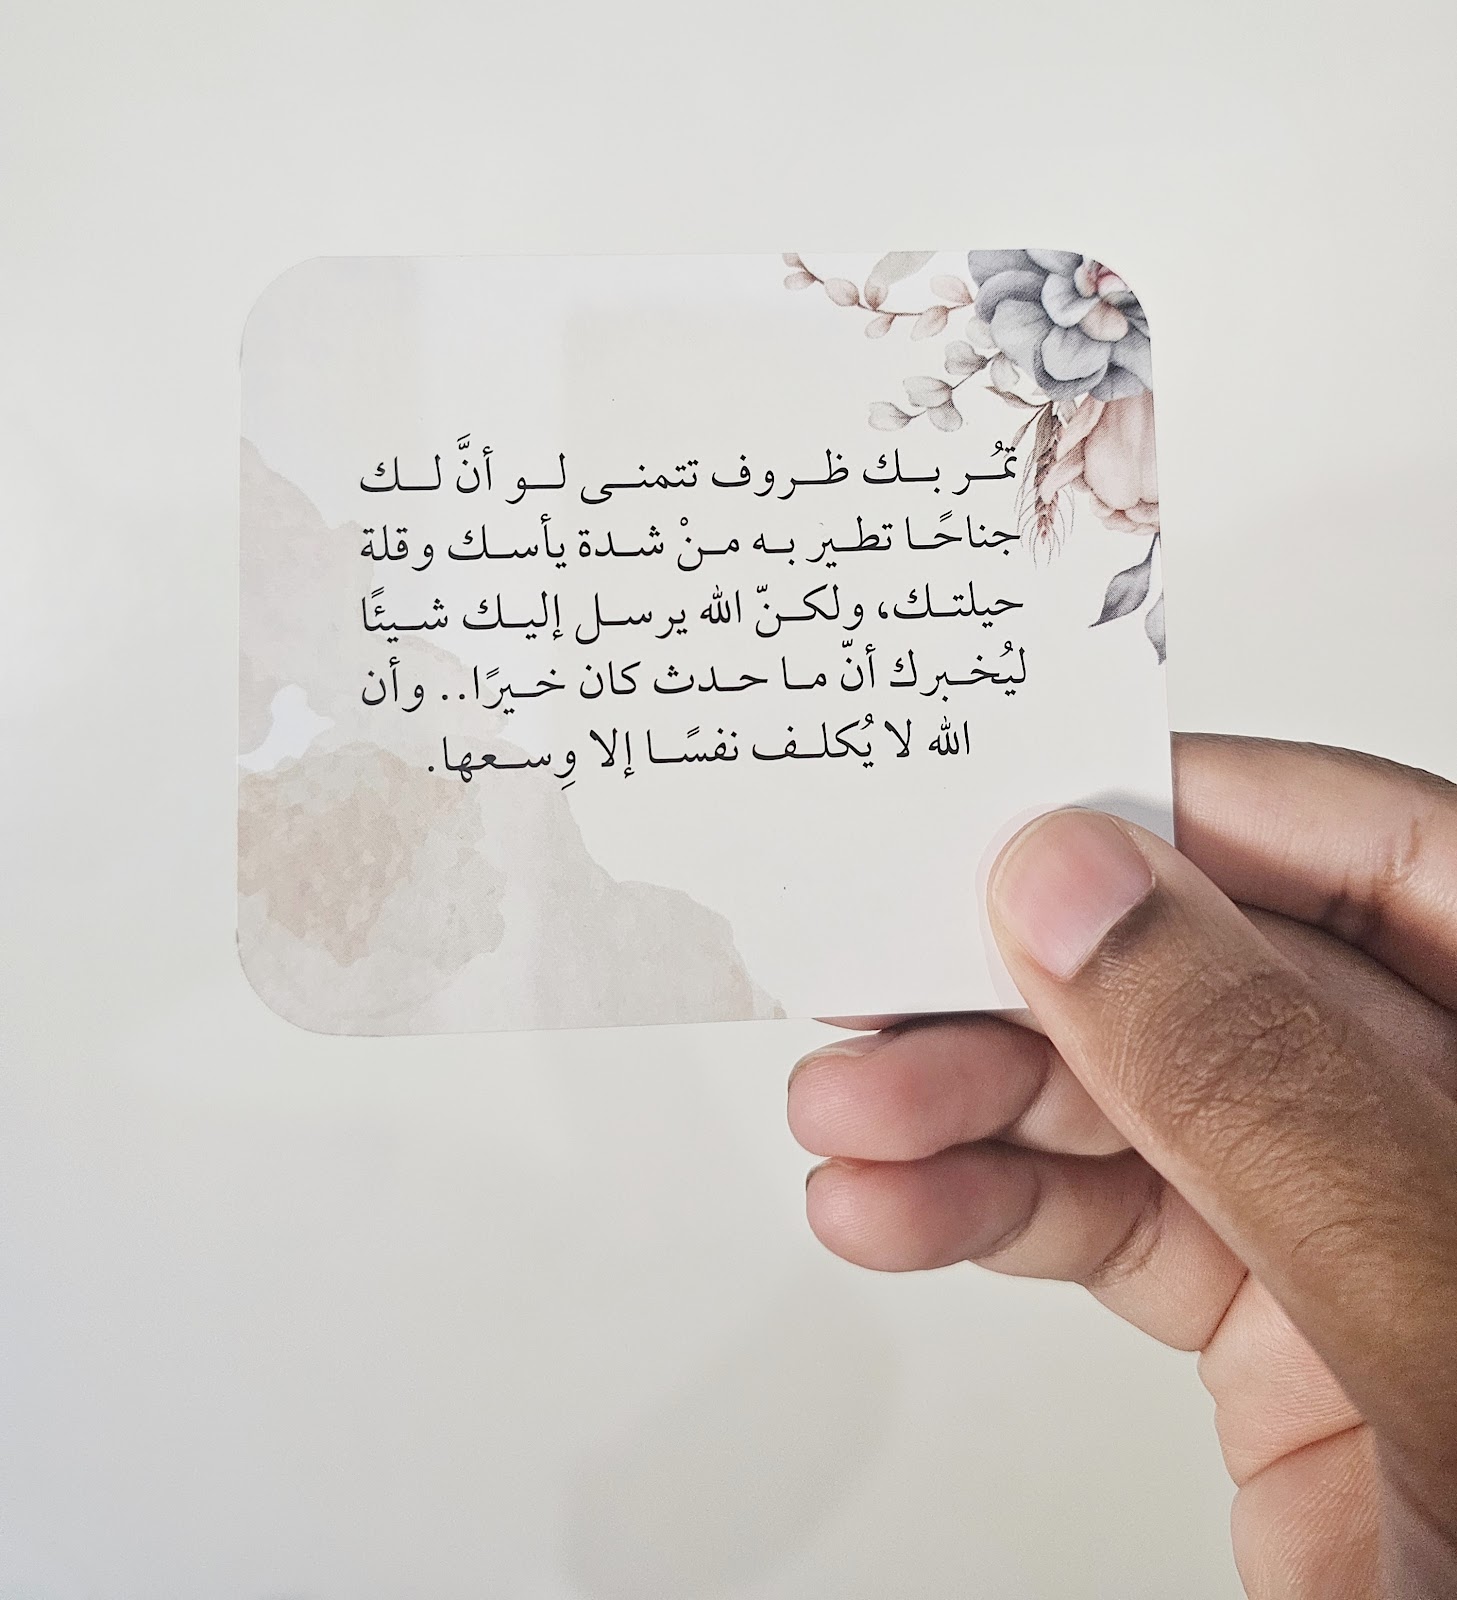 تمُر بك ظروف تتمنى لو أنَّ لك
جناحًا تطير به منْ شدة يأسك وقلة
حيلتك، ولكنّ الله يرسل إليك شيئًا
ليُخبرك أنّ ما حدث كان خيرًا.. وأن
الله لا يُكلف نفسًا إلا وِسعها.